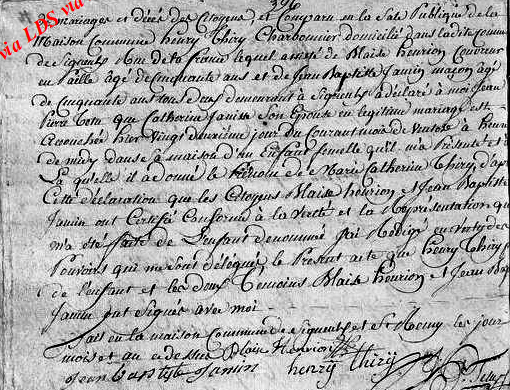 396
via LBS via
mariages et décés des Citoyens et Comparu en la Sale Publique de la
Maison Commune henry Thiry Charbonnier domicilié dans ladite
de Signeulx lequel assisté de Blaise henrion Couvreur
en Paille âgé de Cinquante ans et de Jean Baptiste Jamin maçon âgé
de Cinquante ans tous deux demeurant à Signeulx a déclaré à moi Jean
que Catherine Son Epouse en legitime mariage est
accouchée hier vingt deuxieme jour du Courant mois de ventose à heure
de midy dans Sa maison d'un Enfant femelle qu'il m'a Présenté et à
La quelle il a donné le Prénom de Marie Catherine Thiry d'après
Cette déclaration que les Citoyens Blaise henrion et Jean Baptiste
Jamin ont Certifié Conforme à la Verité et la Représentation qui
m'a été faite de l'enfant denommé J'ai Redigé en vertu des
Pouvoirs qui me Sont délegués le Present acte que henry Thiry
de l'enfant et les deux Temoins Blaise henrion et Jean Bap
Jamin ont Signés avec moi
fait en la maison Commune de Signeulx et St Remy les jour
mois et an ci dessus Blaise Henrion
Jean Baptiste Jamin henry thiry